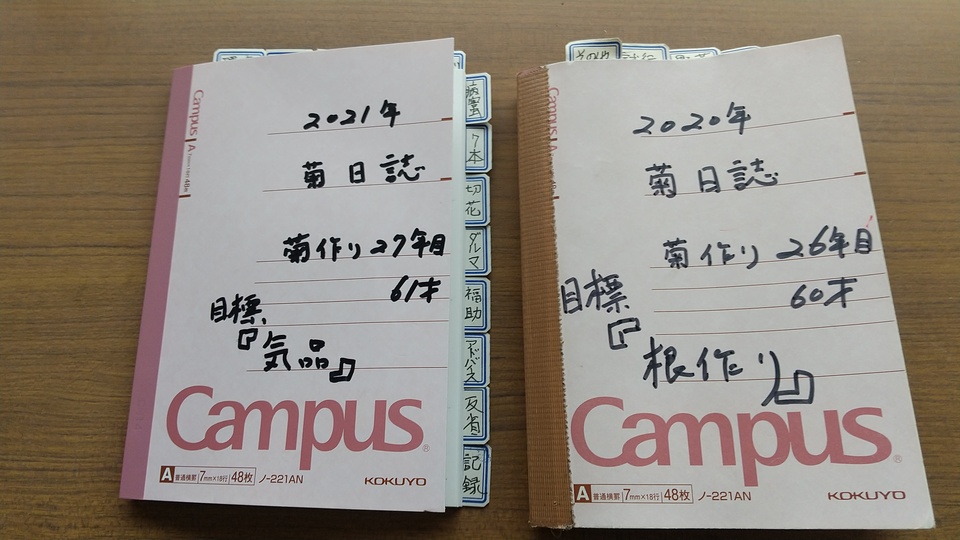 2021年
菊日誌
菊作り27年目
61才
目標、
『気品』
Campus
A 普通横罫 7mm×18行 48枚 ノ-221AN KOKUYO
Campus A
7本
切花
ダルマ
福助
アドバイス
反省
記録
その他
2020年
菊日誌
菊作り26年目
60才
目標
『根作り』
Campus
A 普通横罫 7mm×18行 48枚 ノ-221AN KOKUYO